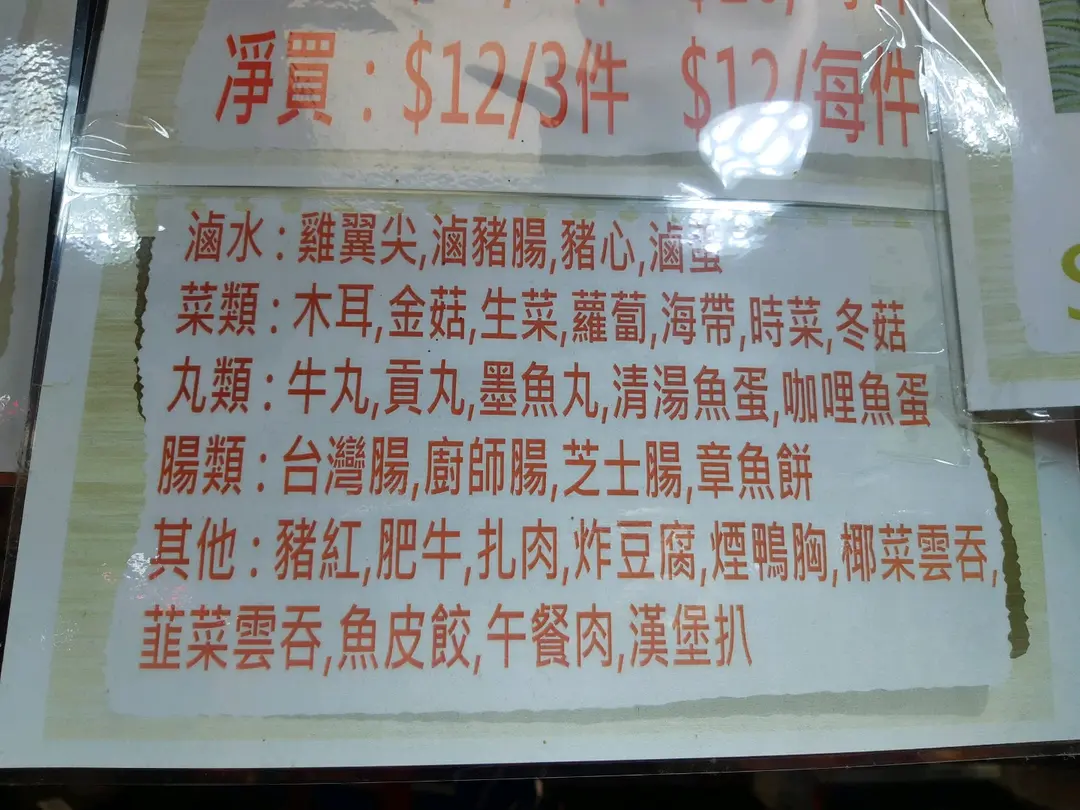 淨買 : $12/3件 $12/每件
滷水 : 雞翼尖,滷豬腸,豬心,滷蛋
菜類 : 木耳,金菇,生菜,蘿蔔,海帶,時菜,冬菇
丸類 : 牛丸,貢丸,墨魚丸,清湯魚蛋,咖哩魚蛋
腸類 : 台灣腸,廚師腸,芝士腸,章魚餅
其他 : 豬紅,肥牛,扎肉,炸豆腐,煙鴨胸,椰菜雲吞,
韮菜雲吞,魚皮餃,午餐肉,漢堡扒